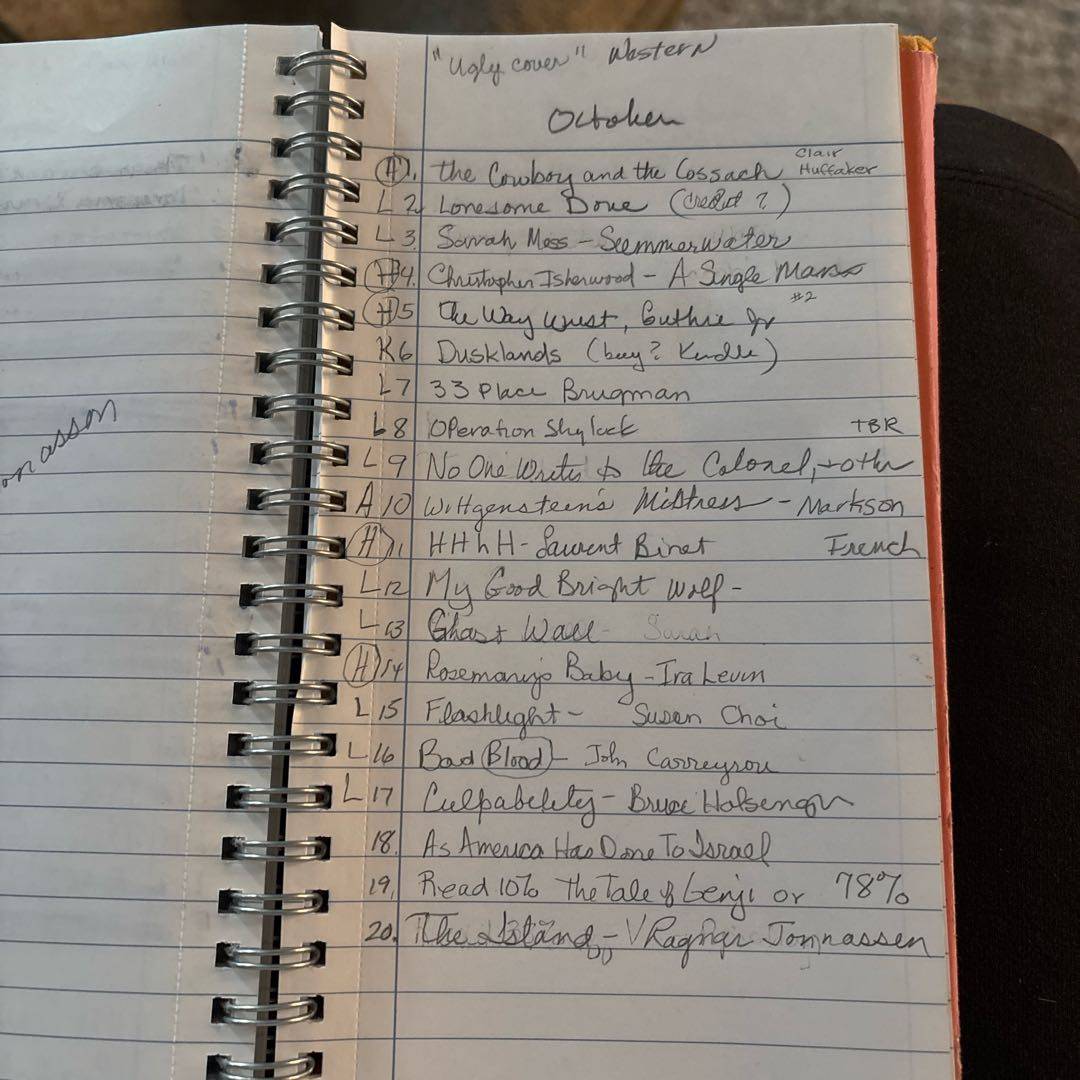 "Ugly cover" Western
October
(H) 1. The Cowboy and the Cossach Clair Huffaker
L 2 Lonesome Dove (credit?)
L 3. Sarah Moss - Summerwater
(H) 4. Christopher Isherwood - A Single Man
(H) 5 The Way West, Guthrie Jr #2
K 6 Dusklands (buy? Kindle)
L 7 33 Place Brugman
L 8 Operation Shylock TBR
L 9 No One Writes to the Colonel, + other
A 10 Wittgenstein's Mistress - Markson
(H) 11 HHhH - Laurent Binet French
L 12 My Good Bright Wolf -
L 13 Ghost Wall - Sarah
(H) 14 Rosemary's Baby - Ira Levin
L 15 Flashlight - Susan Choi
L 16 Bad Blood - John Carreyrou
L 17 Culpability - Bruce Holsinger
18. As America Has Done To Israel
19. Read 10% The Tale of Genji or 78%
20. The Island - Ragnar Jonnassen
onasson